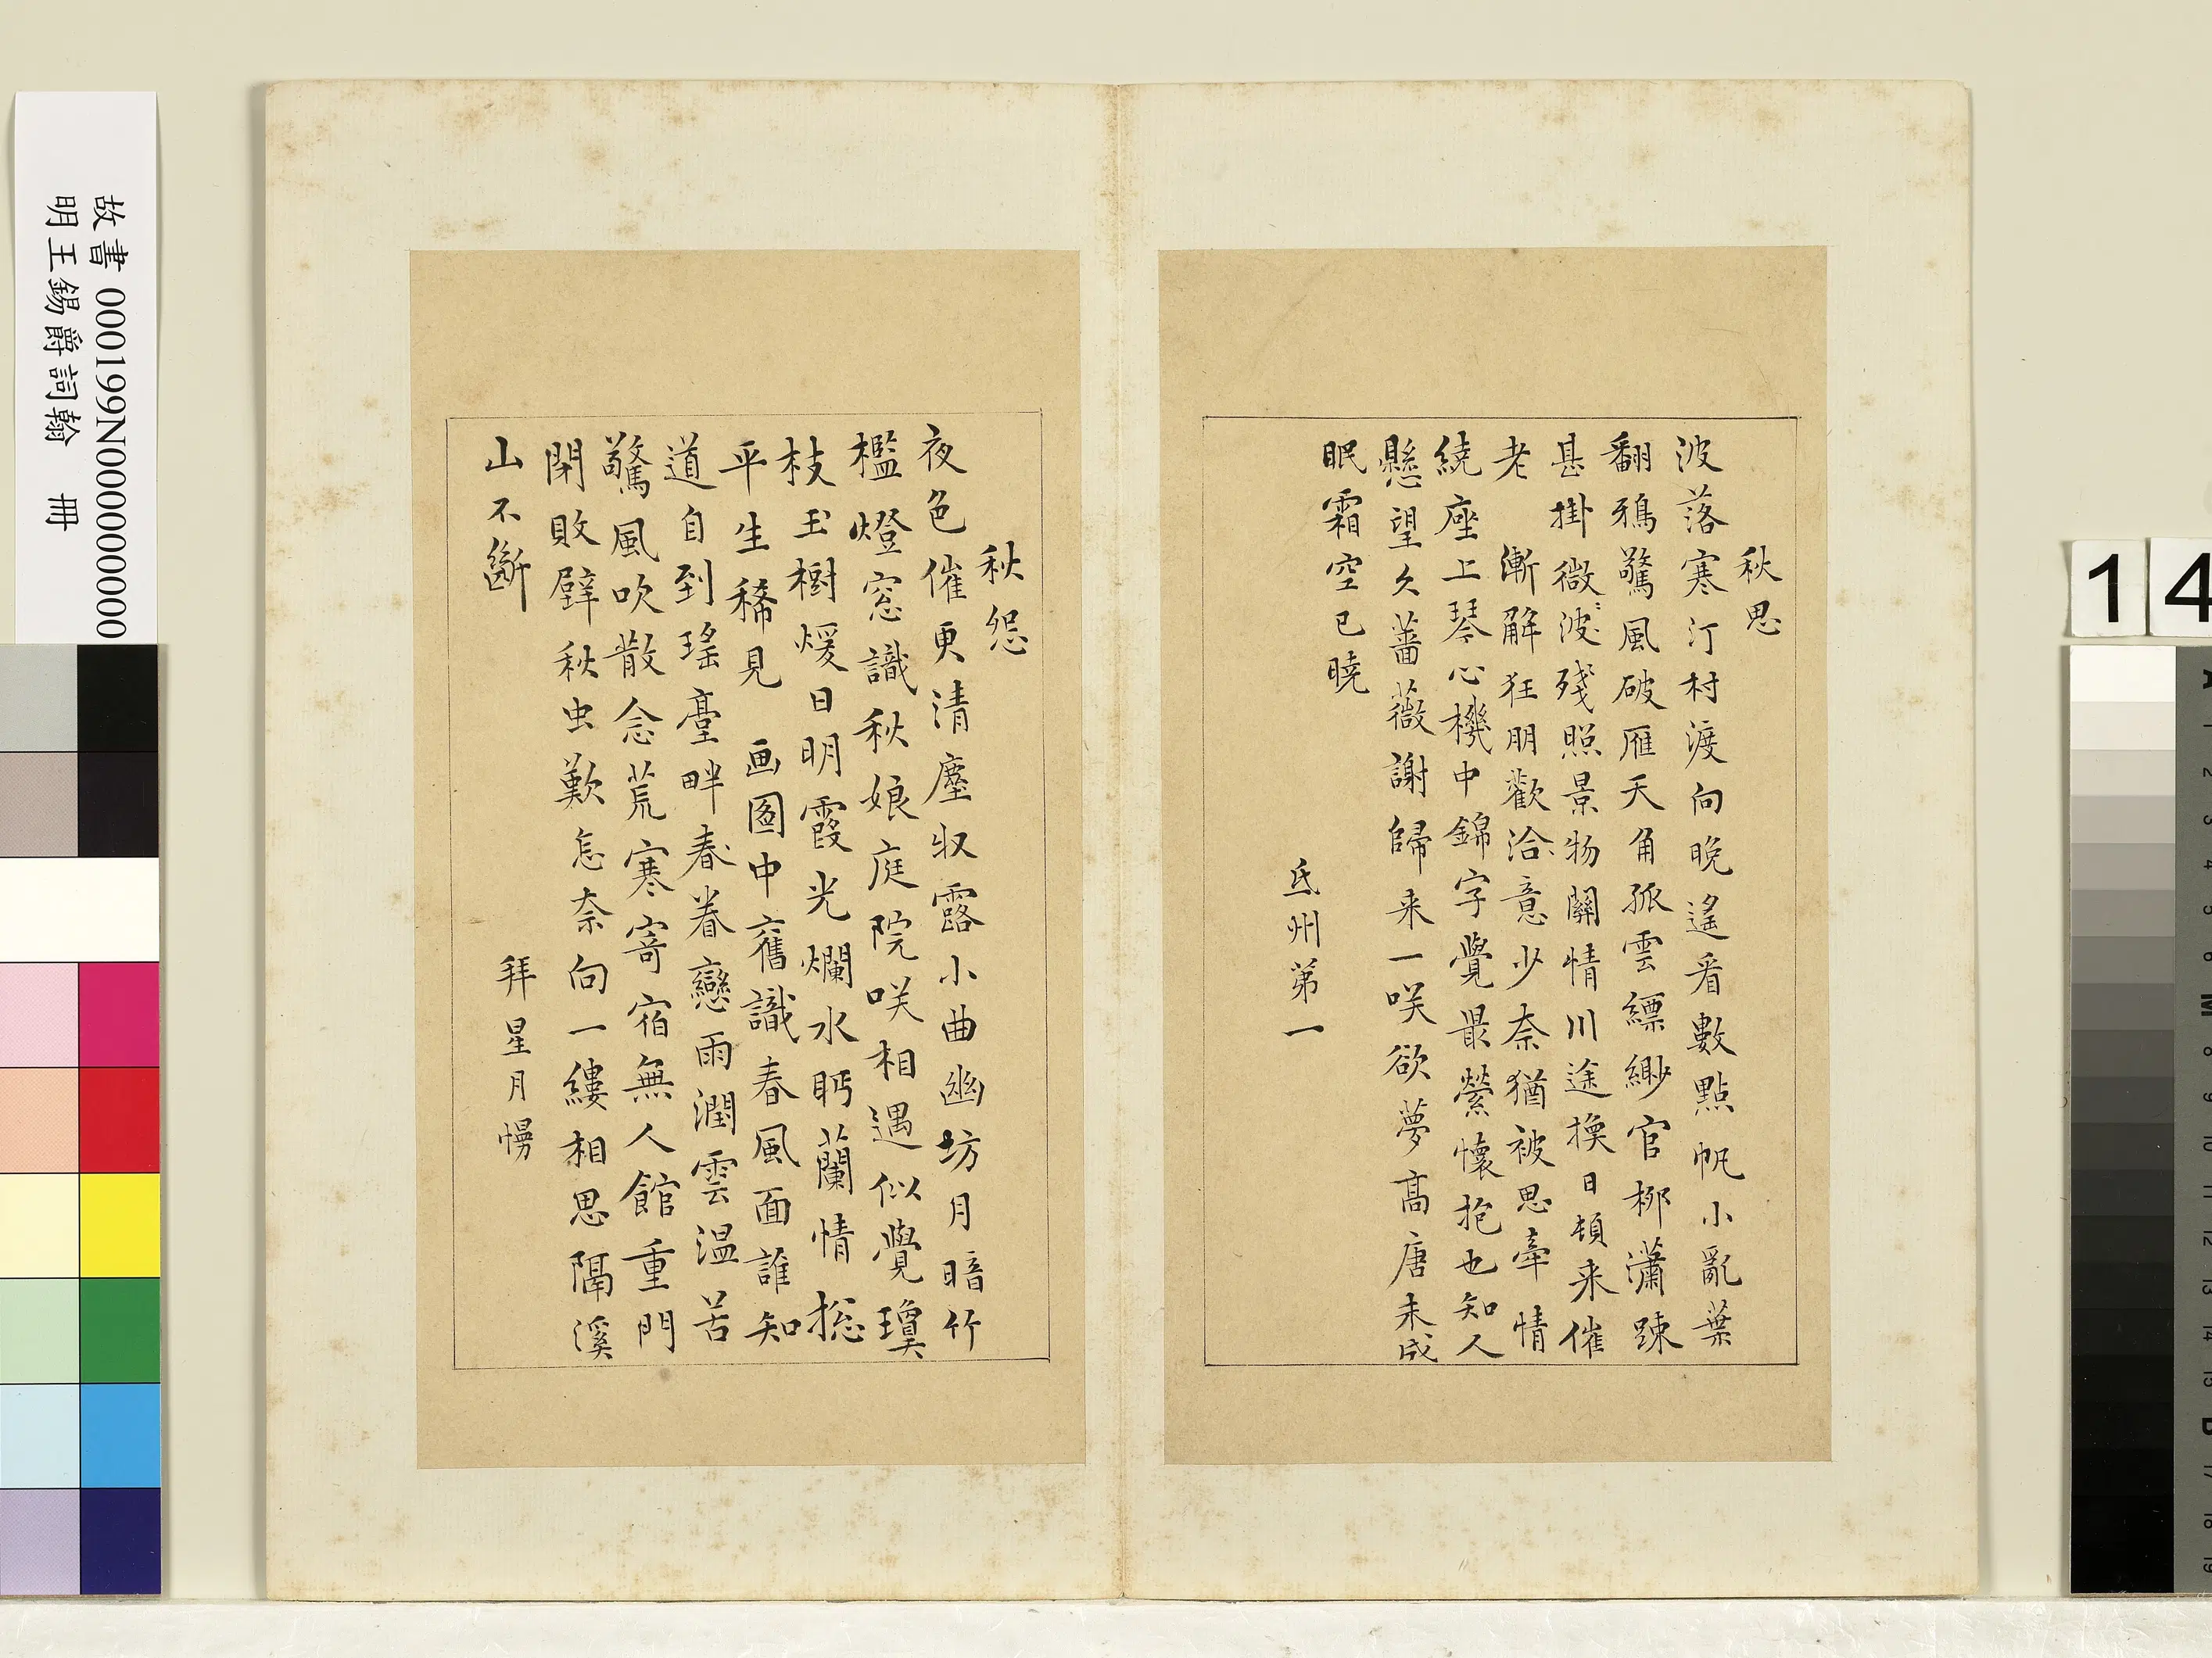 秋思
波落寒汀村渡向晚遙看數點帆小亂葉
翻鴉驚風破雁天角孤雲縹緲官柳瀟踈
甚掛微〻波殘照景物關情川途換日頓来催
老　漸解狂朋歡洽意少奈猶被思牽情
繞座上琴心機中錦字覺最縈懷抱也知人
懸望久薔薇謝歸来一咲欲夢高唐未成
眠霜空已曉
氐州第一
秋怨
夜色催更清塵収露小曲幽坊月暗竹
檻燈窓識秋娘庭院咲相遇似覺瓊
枝玉樹煖日明霞光爛水眄蘭情揔
平生稀見　画圖中舊識春風面誰知
道自到瑤臺畔春眷戀雨潤雲温苦
驚風吹散念荒寒寄宿無人館重門
閉敗壁秋虫歎怎奈向一縷相思隔溪
山不斷
拜星月慢
故書 000199N000000000
明王錫爵詞翰　冊
14